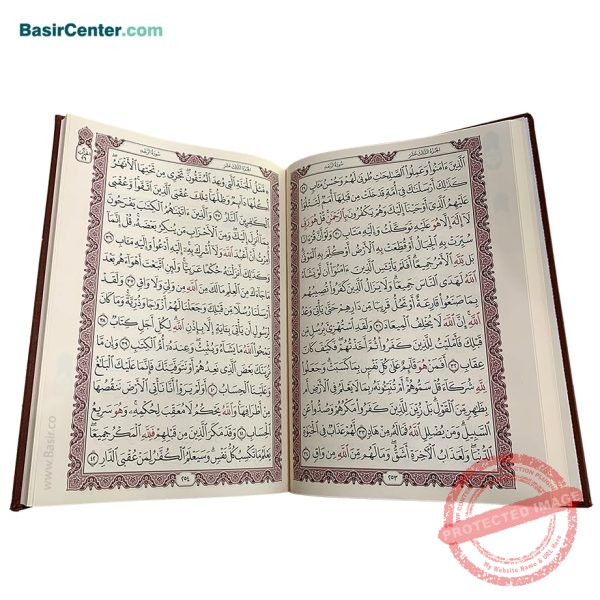 BasirCenter.com
سُورَةُ الرَّعْدِ
الجُزْءُ الثَّالِثَ عَشَرَ
الَّذِينَ ءَامَنُوا وَعَمِلُوا الصَّٰلِحَٰتِ طُوبَىٰ لَهُمْ وَحُسْنُ مَـَٔابٍ ٢٩
كَذَٰلِكَ أَرْسَلْنَٰكَ فِي أُمَّةٍ قَدْ خَلَتْ مِن قَبْلِهَا أُمَمٌ لِّتَتْلُوَا
عَلَيْهِمُ الَّذِي أَوْحَيْنَا إِلَيْكَ وَهُمْ يَكْفُرُونَ بِالرَّحْمَٰنِ قُلْ هُوَ رَبِّي
لَا إِلَٰهَ إِلَّا هُوَ عَلَيْهِ تَوَكَّلْتُ وَإِلَيْهِ مَتَابِ ٣٠ وَلَوْ أَنَّ قُرْءَانًا
سُيِّرَتْ بِهِ الْجِبَالُ أَوْ قُطِّعَتْ بِهِ الْأَرْضُ أَوْ كُلِّمَ بِهِ الْمَوْتَىٰ بَل
لِّلَّهِ الْأَمْرُ جَمِيعًا أَفَلَمْ يَا۟يْـَٔسِ الَّذِينَ ءَامَنُوا أَن لَّوْ يَشَاءُ
اللَّهُ لَهَدَى النَّاسَ جَمِيعًا وَلَا يَزَالُ الَّذِينَ كَفَرُوا تُصِيبُهُم
بِمَا صَنَعُوا قَارِعَةٌ أَوْ تَحُلُّ قَرِيبًا مِّن دَارِهِمْ حَتَّىٰ يَأْتِيَ وَعْدُ
اللَّهِ إِنَّ اللَّهَ لَا يُخْلِفُ الْمِيعَادَ ٣١ وَلَقَدِ اسْتُهْزِئَ بِرُسُلٍ مِّن
قَبْلِكَ فَأَمْلَيْتُ لِلَّذِينَ كَفَرُوا ثُمَّ أَخَذْتُهُمْ فَكَيْفَ كَانَ
عِقَابِ ٣٢ أَفَمَنْ هُوَ قَائِمٌ عَلَىٰ كُلِّ نَفْسٍ بِمَا كَسَبَتْ وَجَعَلُوا
لِلَّهِ شُرَكَاءَ قُلْ سَمُّوهُمْ أَمْ تُنَبِّـُٔونَهُ بِمَا لَا يَعْلَمُ فِي الْأَرْضِ أَم
بِظَٰهِرٍ مِّنَ الْقَوْلِ بَلْ زُيِّنَ لِلَّذِينَ كَفَرُوا مَكْرُهُمْ وَصُدُّوا عَنِ
السَّبِيلِ وَمَن يُضْلِلِ اللَّهُ فَمَا لَهُ مِنْ هَادٍ ٣٣ لَّهُمْ عَذَابٌ فِي الْحَيَوٰةِ
الدُّنْيَا وَلَعَذَابُ الْأَخِرَةِ أَشَقُّ وَمَا لَهُم مِّنَ اللَّهِ مِن وَاقٍ ٣٤
٢٥٣
سُورَةُ الرَّعْدِ
الجُزْءُ الثَّالِثَ عَشَرَ
مَّثَلُ الْجَنَّةِ الَّتِي وُعِدَ الْمُتَّقُونَ تَجْرِي مِن تَحْتِهَا الْأَنْهَٰرُ
أُكُلُهَا دَائِمٌ وَظِلُّهَا تِلْكَ عُقْبَى الَّذِينَ اتَّقَوا وَّعُقْبَى
الْكَٰفِرِينَ النَّارُ ٣٥ وَالَّذِينَ ءَاتَيْنَٰهُمُ الْكِتَٰبَ يَفْرَحُونَ
بِمَا أُنزِلَ إِلَيْكَ وَمِنَ الْأَحْزَابِ مَن يُنكِرُ بَعْضَهُ قُلْ إِنَّمَا
أُمِرْتُ أَنْ أَعْبُدَ اللَّهَ وَلَا أُشْرِكَ بِهِ إِلَيْهِ أَدْعُوا وَإِلَيْهِ مَـَٔابِ ٣٦
وَكَذَٰلِكَ أَنزَلْنَٰهُ حُكْمًا عَرَبِيًّا وَلَئِنِ اتَّبَعْتَ أَهْوَاءَهُم بَعْدَ
مَا جَاءَكَ مِنَ الْعِلْمِ مَا لَكَ مِنَ اللَّهِ مِن وَلِيٍّ وَلَا وَاقٍ ٣٧ وَلَقَدْ
أَرْسَلْنَا رُسُلًا مِّن قَبْلِكَ وَجَعَلْنَا لَهُمْ أَزْوَٰجًا وَذُرِّيَّةً وَمَا كَانَ
لِرَسُولٍ أَن يَأْتِيَ بِـَٔايَةٍ إِلَّا بِإِذْنِ اللَّهِ لِكُلِّ أَجَلٍ كِتَابٌ ٣٨
يَمْحُوا اللَّهُ مَا يَشَاءُ وَيُثْبِتُ وَعِندَهُ أُمُّ الْكِتَٰبِ ٣٩ وَإِن مَّا
نُرِيَنَّكَ بَعْضَ الَّذِي نَعِدُهُمْ أَوْ نَتَوَفَّيَنَّكَ فَإِنَّمَا عَلَيْكَ الْبَلَٰغُ
وَعَلَيْنَا الْحِسَابُ ٤٠ أَوَلَمْ يَرَوْا أَنَّا نَأْتِي الْأَرْضَ نَنقُصُهَا
مِنْ أَطْرَافِهَا وَاللَّهُ يَحْكُمُ لَا مُعَقِّبَ لِحُكْمِهِ وَهُوَ سَرِيعُ
الْحِسَابِ ٤١ وَقَدْ مَكَرَ الَّذِينَ مِن قَبْلِهِمْ فَلِلَّهِ الْمَكْرُ جَمِيعًا
يَعْلَمُ مَا تَكْسِبُ كُلُّ نَفْسٍ وَسَيَعْلَمُ الْكُفَّٰرُ لِمَنْ عُقْبَى الدَّارِ ٤٢
٢٥٤
www.Basir.co
PROTECTED IMAGE
My Website Name & URL Here